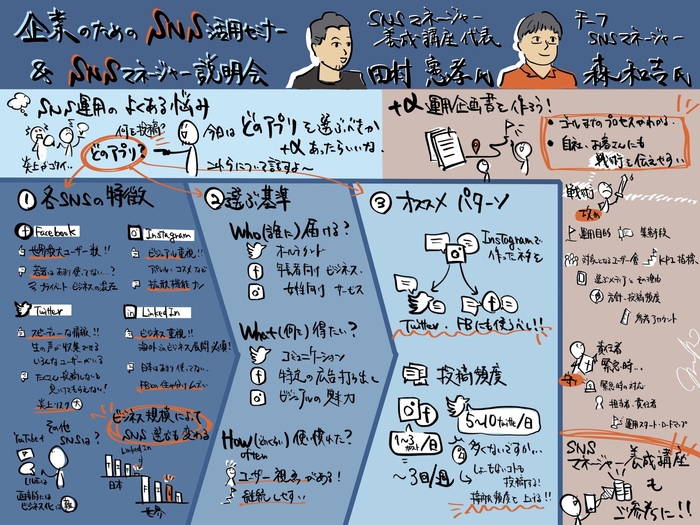 企業のための SNS活用セミナー
& SNSマネージャー説明会
SNSマネージャー
養成講座代表
田村 憲孝氏
チーフ
SNSマネージャー
森 和吉氏
SNS運用のよくある悩み
何を投稿?
どのアプリ?
今日はどのアプリを選ぶべきか
+αあったらいいな、
これらについて話すよ〜
+α 運用企画書を作ろう!
・ゴールまでのプロセスがわかる
・自社・お客さんにも
戦術を伝えやすい
① 各SNSの特徴
Facebook
世界最大ユーザー数!!
若者はあまり使ってない…?
プライベート ビジネスの混在
Instagram
ビジュアル重視!!
アパレル・コスメなど
拡散機能ナシ
Twitter
スピーディーな情報!!
生の声が収集できる
いろんなユーザーがいる
たくさん投稿しないと
見いてもらえない!
炎上リスク 大
LinkedIn
ビジネス重視!!
海外・ビジネス展開 必須!
日本はあまり使ってない…
その他
SNSは?
YouTube
ビジネス規模によって
SNS選びも変わる
LinkedIn
日本
世界
② 選ぶ基準
Who(誰に)届ける?
オールラウンド
年長者向け ビジネス
女性向け サービス
What(何に)得たい?
コミュニケーション
特定の広告打ち出し
ビジュアルの魅力
How often(どのくらい)使い慣れた?
ユーザー視点がある!
継続しやすい
③ オススメ パターン
Instagramで
作ったネタを
Twitter・FBにも使うべし!!
投稿頻度
1〜3ポスト/日
〜3日/週
5〜10 twitte/日
多くないですか…
しょーもないコトも
投稿する!
接触頻度を上げる!!
戦術
攻め
運用目的
集客手段
対象となるユーザー層
KPI指標
選ぶメディアとその理由
方針・投稿頻度
参考アカウント
守り
責任者
緊急時…
緊急時の対応
担当者・責任者
運用スタート・ロードマップ
SNS
マネージャー養成講座
も
ご参考に!!